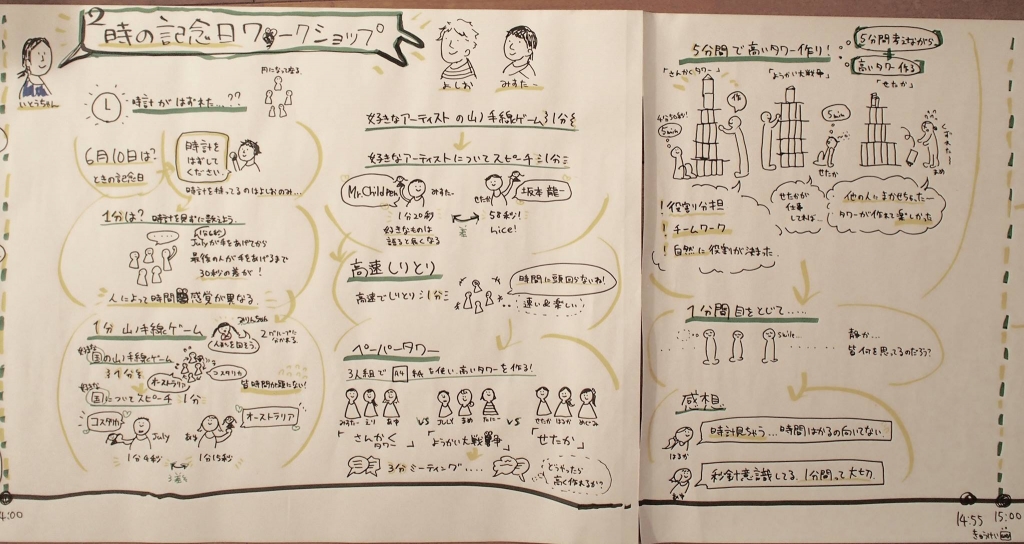 2
時の記念日ワークショップ
いとうちゃん
よしお
みすたー
円になって座る
時計がはずれた…??
6月10日は?
ときの記念日
時計を
はずして
ください。
時計を持ってるのはよしおのみ…
1分は? 時計を見ずに数えよう。
(1分6秒)
Julyが手をあげてから
最後の人が手をあげるまで
30秒の差が!
人によって時間感覚が異なる
1分 山ノ手線ゲーム
みりんちゃん
2グループに
分かれる
好きな
国の山ノ手線ゲーム
オーストラリア
コスタリカ
皆時間が頭にない!
好きな
国についてスピーチ 1分
コスタリカ
July
1分4秒
あゆ
オーストラリア
1分15秒
好きなアーティストの山ノ手線ゲーム 1分を
好きなアーティストについてスピーチ 1分
Mr.Children
みすたー
1分20秒
好きなものは
語ると長くなる
差
せたか
坂本龍一
58秒!
Nice!
高速しりとり
高速でしりとり 1分
時間に頭回らないね!
速い&楽しい
ペーパータワー
3人組で A4 紙を使い、高いタワーを作る!
みすたー えり あゆ
VS
July まめ たにー
VS
せたか はるか めぐみ
「さんかく
タワー」
「ようかい大戦争」
「せたか」
3分ミーティング……
どうやったら
高く作れるか?
5分間で高いタワー作り!
5分間考えながら
+
高いタワー作る
「さんかくタワー」
「ようかい大戦争」
「せたか」
4分30秒!
5min
作
5min
せたか
まめ
!役割分担
!チームワーク
!自然に役割が決まった
せたかが
仕事
してれば…
他の人にまかせちゃったー
タワーが作れて楽しかった
1分間目をとじて……
5min…
静か…
皆何を思ってるのだろう?
感想
はるか
時計見ちゃう…時間はかるの向いてない。
あゆ
秒針意識してる。1分間って大切。
4:00
14:55
きゅうけい
15:00